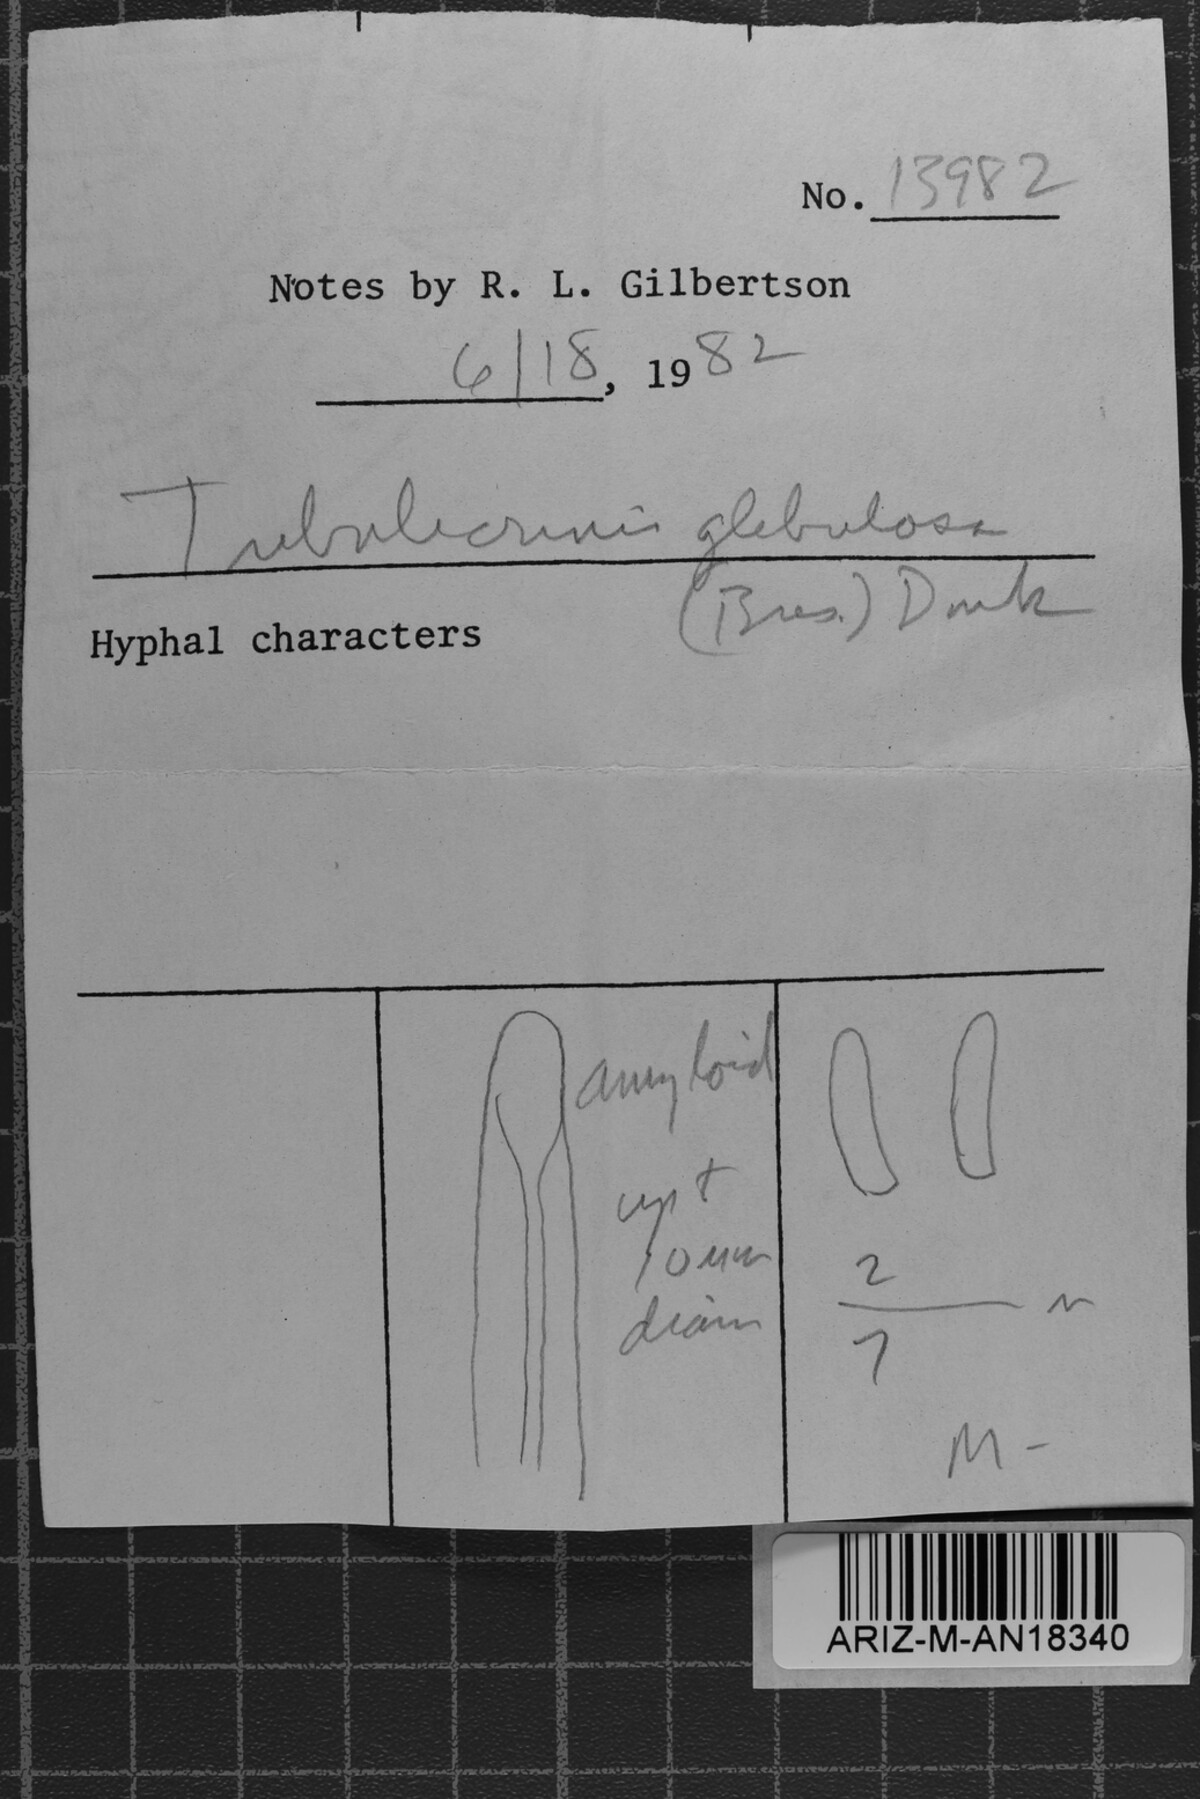 No. 13982
Notes by R. L. Gilbertson
6/18, 1982
Tubulicrinis glebulosa
(Bres.) Donk
Hyphal characters
amyloid
up t
10 um
diam
2
7
M -
ARIZ-M-AN18340